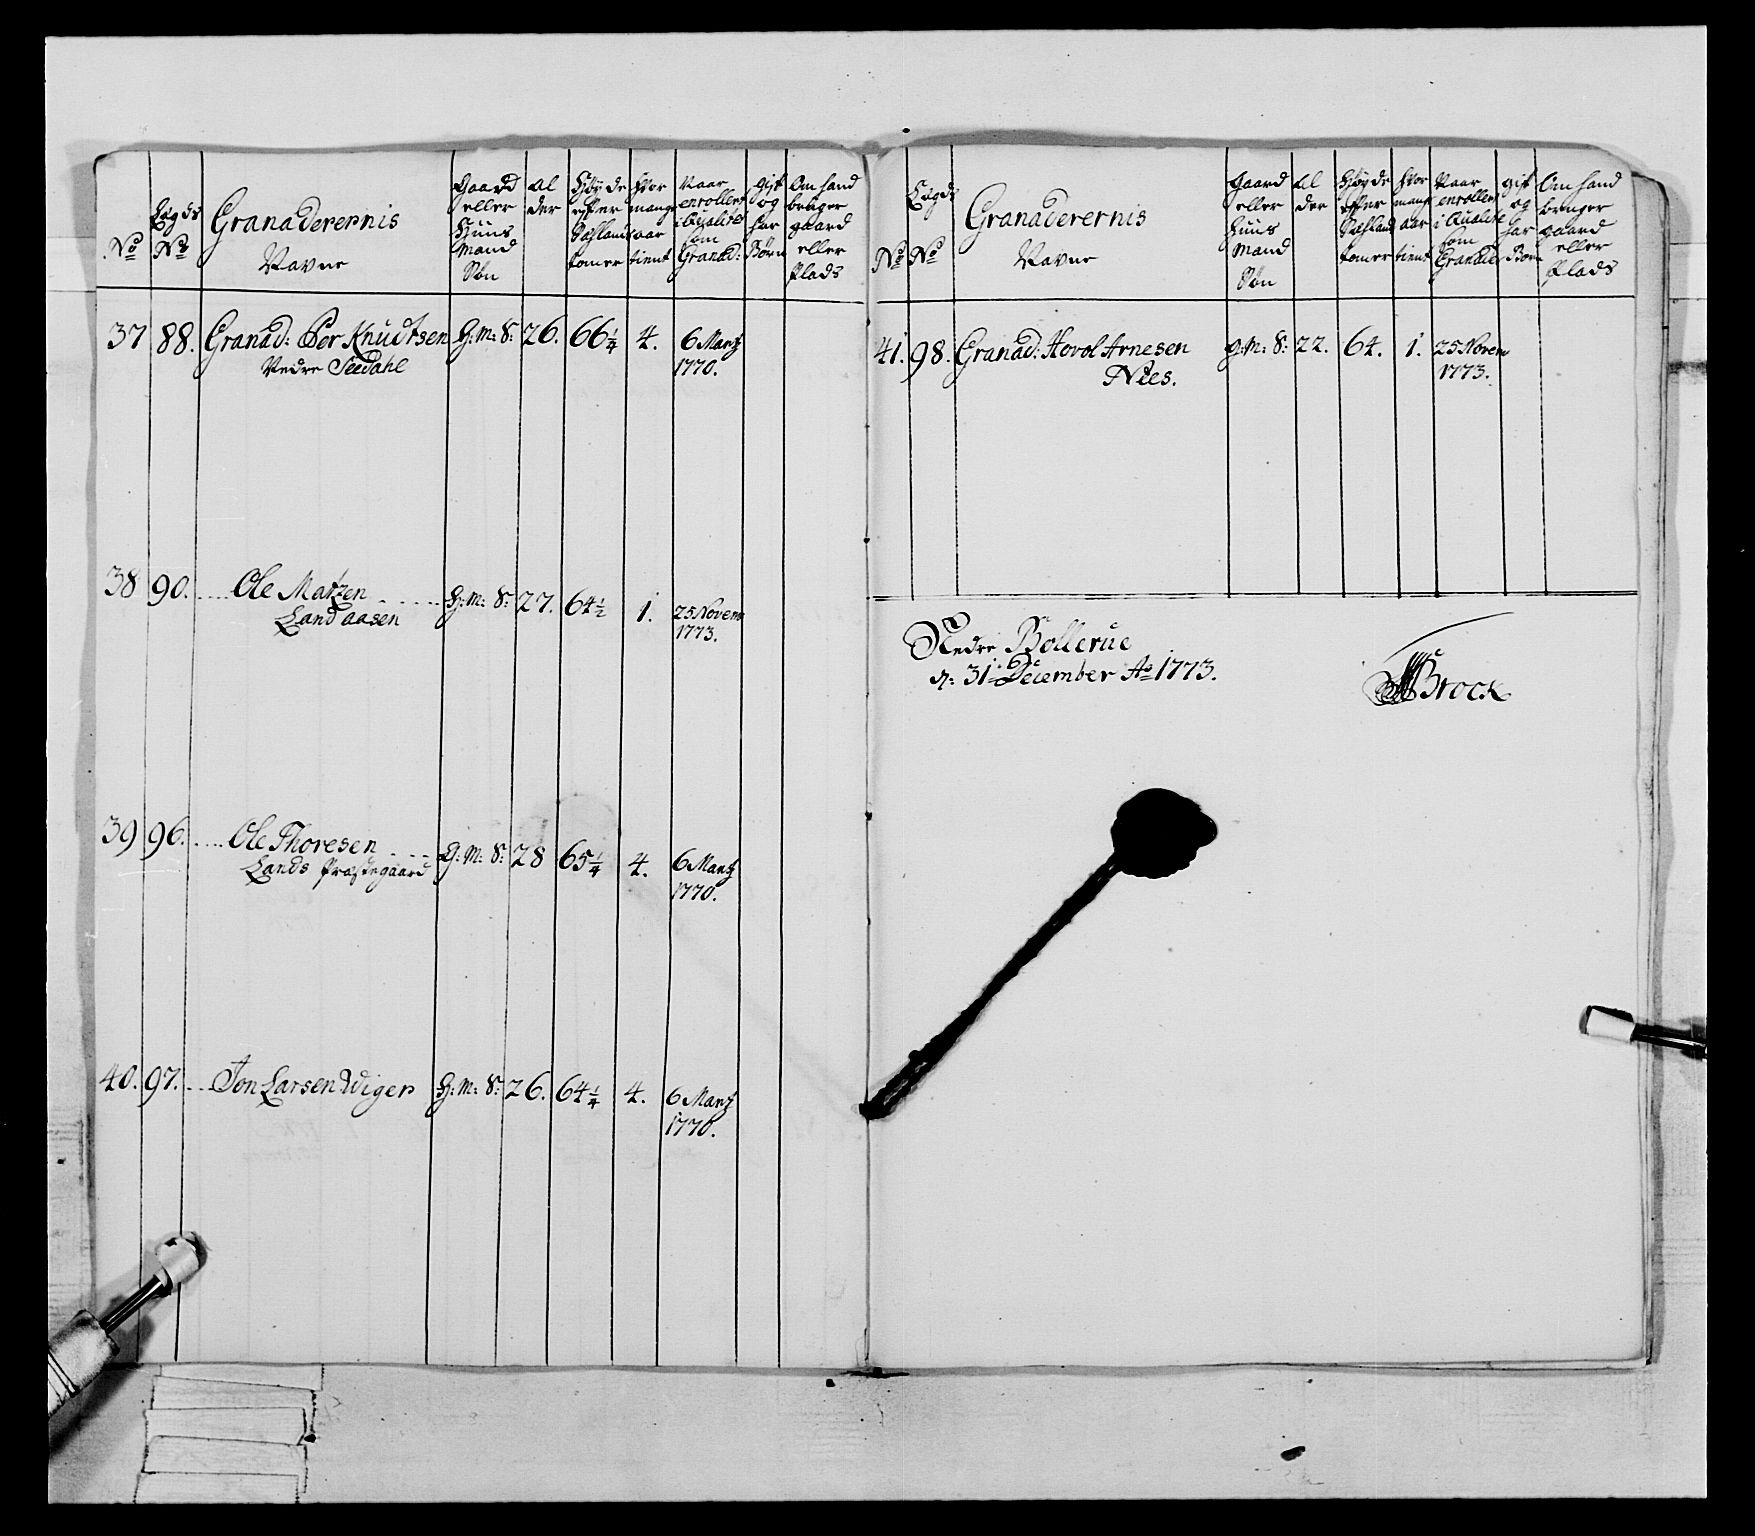 No
Lægds No
Granaderernis Navne
Gaard eller Huus Mand Søn
Alder
Høyde efter Siælands tomer
Hvor mange aar tient
Naar enrollert i Qualitet som Granad:
gift og har Børn
Om hand bruger gaard eller Plads
37 88. Granad: Per Knudtsen G: M: S: 26. 66 1/4 4. 6 Martz
Nedre Seedahl 1770.
38 90. .... Ole Matzen ..... G: M: S: 27. 64 1/2 1. 25 Novem
Landaasen 1773.
39 96. .... Ole Thoresen .... G: M: S: 28 65 1/4 4. 6 Martz
Lands Præstegaard 1770.
40. 97. ... Jon Larsen Wiger G: M: S: 26. 64 1/4 4. 6 Martz
1770.
No
Lægds No
Granaderernis Navne
Gaard eller Huus Mand Søn
Alder
Høyde efter Siæland tomer
Hvor mang aar tient
Naar enrollert i Qualite som Granader
gift og har Børn
Om hand bruger gaard eller Plads
41. 98. Granad: Hovol Arnesen G: M: S: 22. 64. 1. 25 Novem
Nees. 1773.
Nedre Bollerue
d: 31 December Ao 1773.
Brock